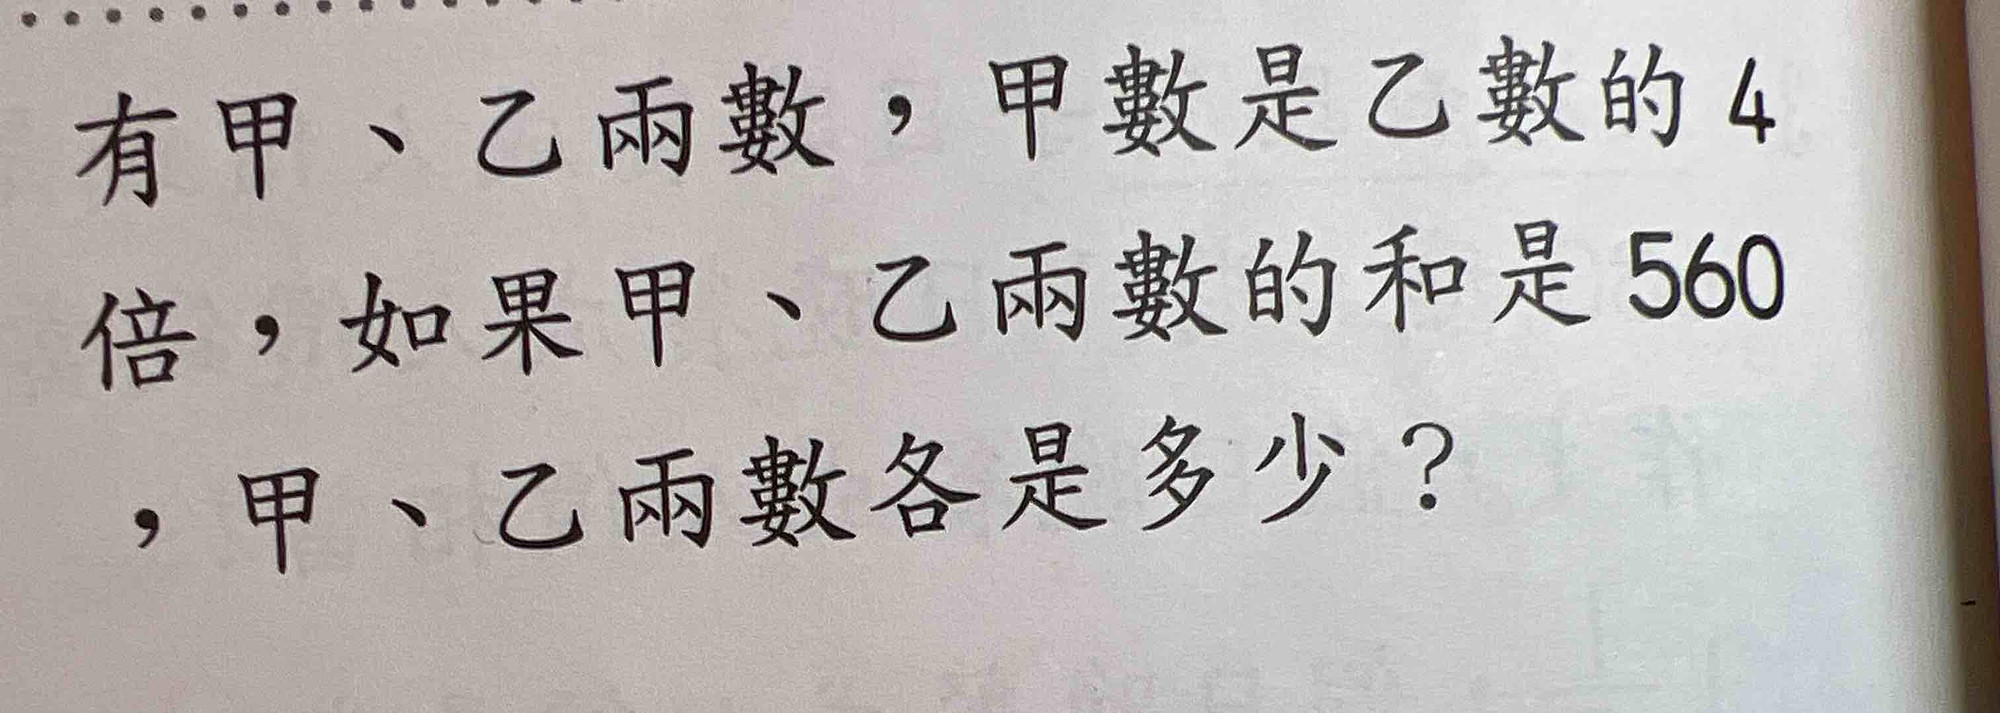 有甲、乙兩數，甲數是乙數的4
倍，如果甲、乙兩數的和是560
，甲、乙兩數各是多少？